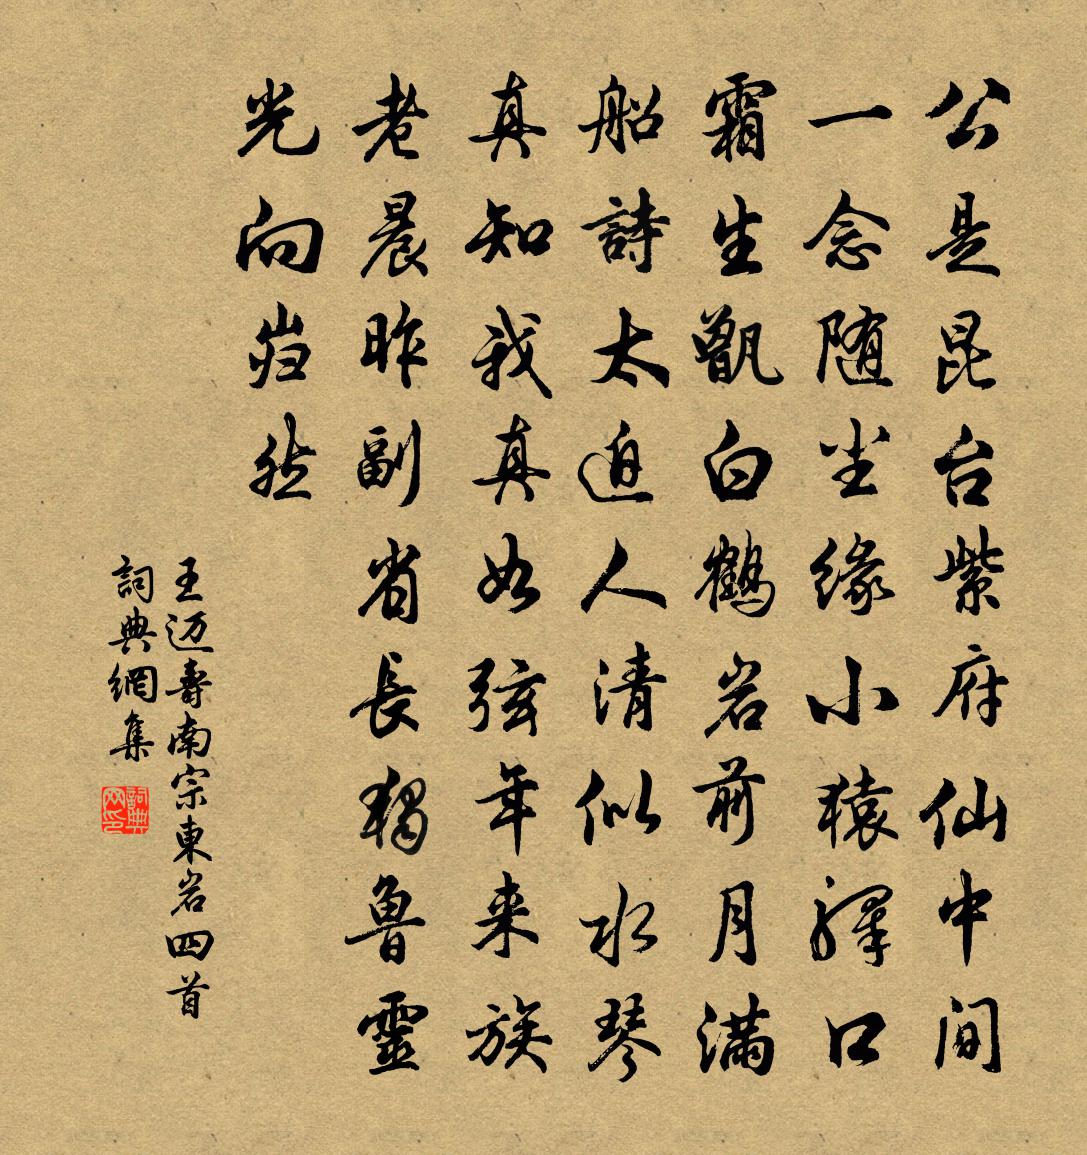 公是昆台紫府仙中间
一念随尘缘小猿驛口
霜生甑白鶴岩前月满
船詩太迫人清似水琴
真知我真如弦年来族
老晨昨副省長獨魯靈
光向岿然
王迈壽南宗東岩四首
詞典網集
詞典网印